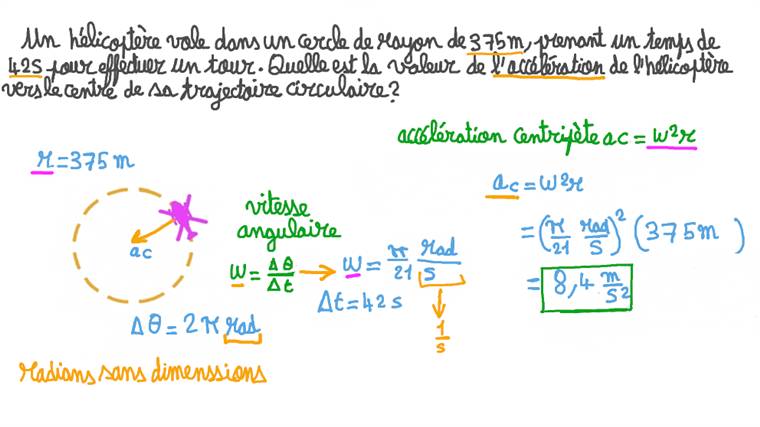 Un hélicoptère vole dans un cercle de rayon de 375m, prenant un temps de
42S pour effectuer un tour. Quelle est la valeur de l'accélération de l'hélicoptère
vers le centre de sa trajectoire circulaire?
accélération centripète ac = w²r
r = 375 m
ac
vitesse
angulaire
w = Δθ/Δt → w = π/21 rad/s
Δt = 42 s
1/s
Δθ = 2π rad
radians sans dimenssions
ac = w²r
= (π/21 rad/s)² (375m)
= 8,4 m/s²